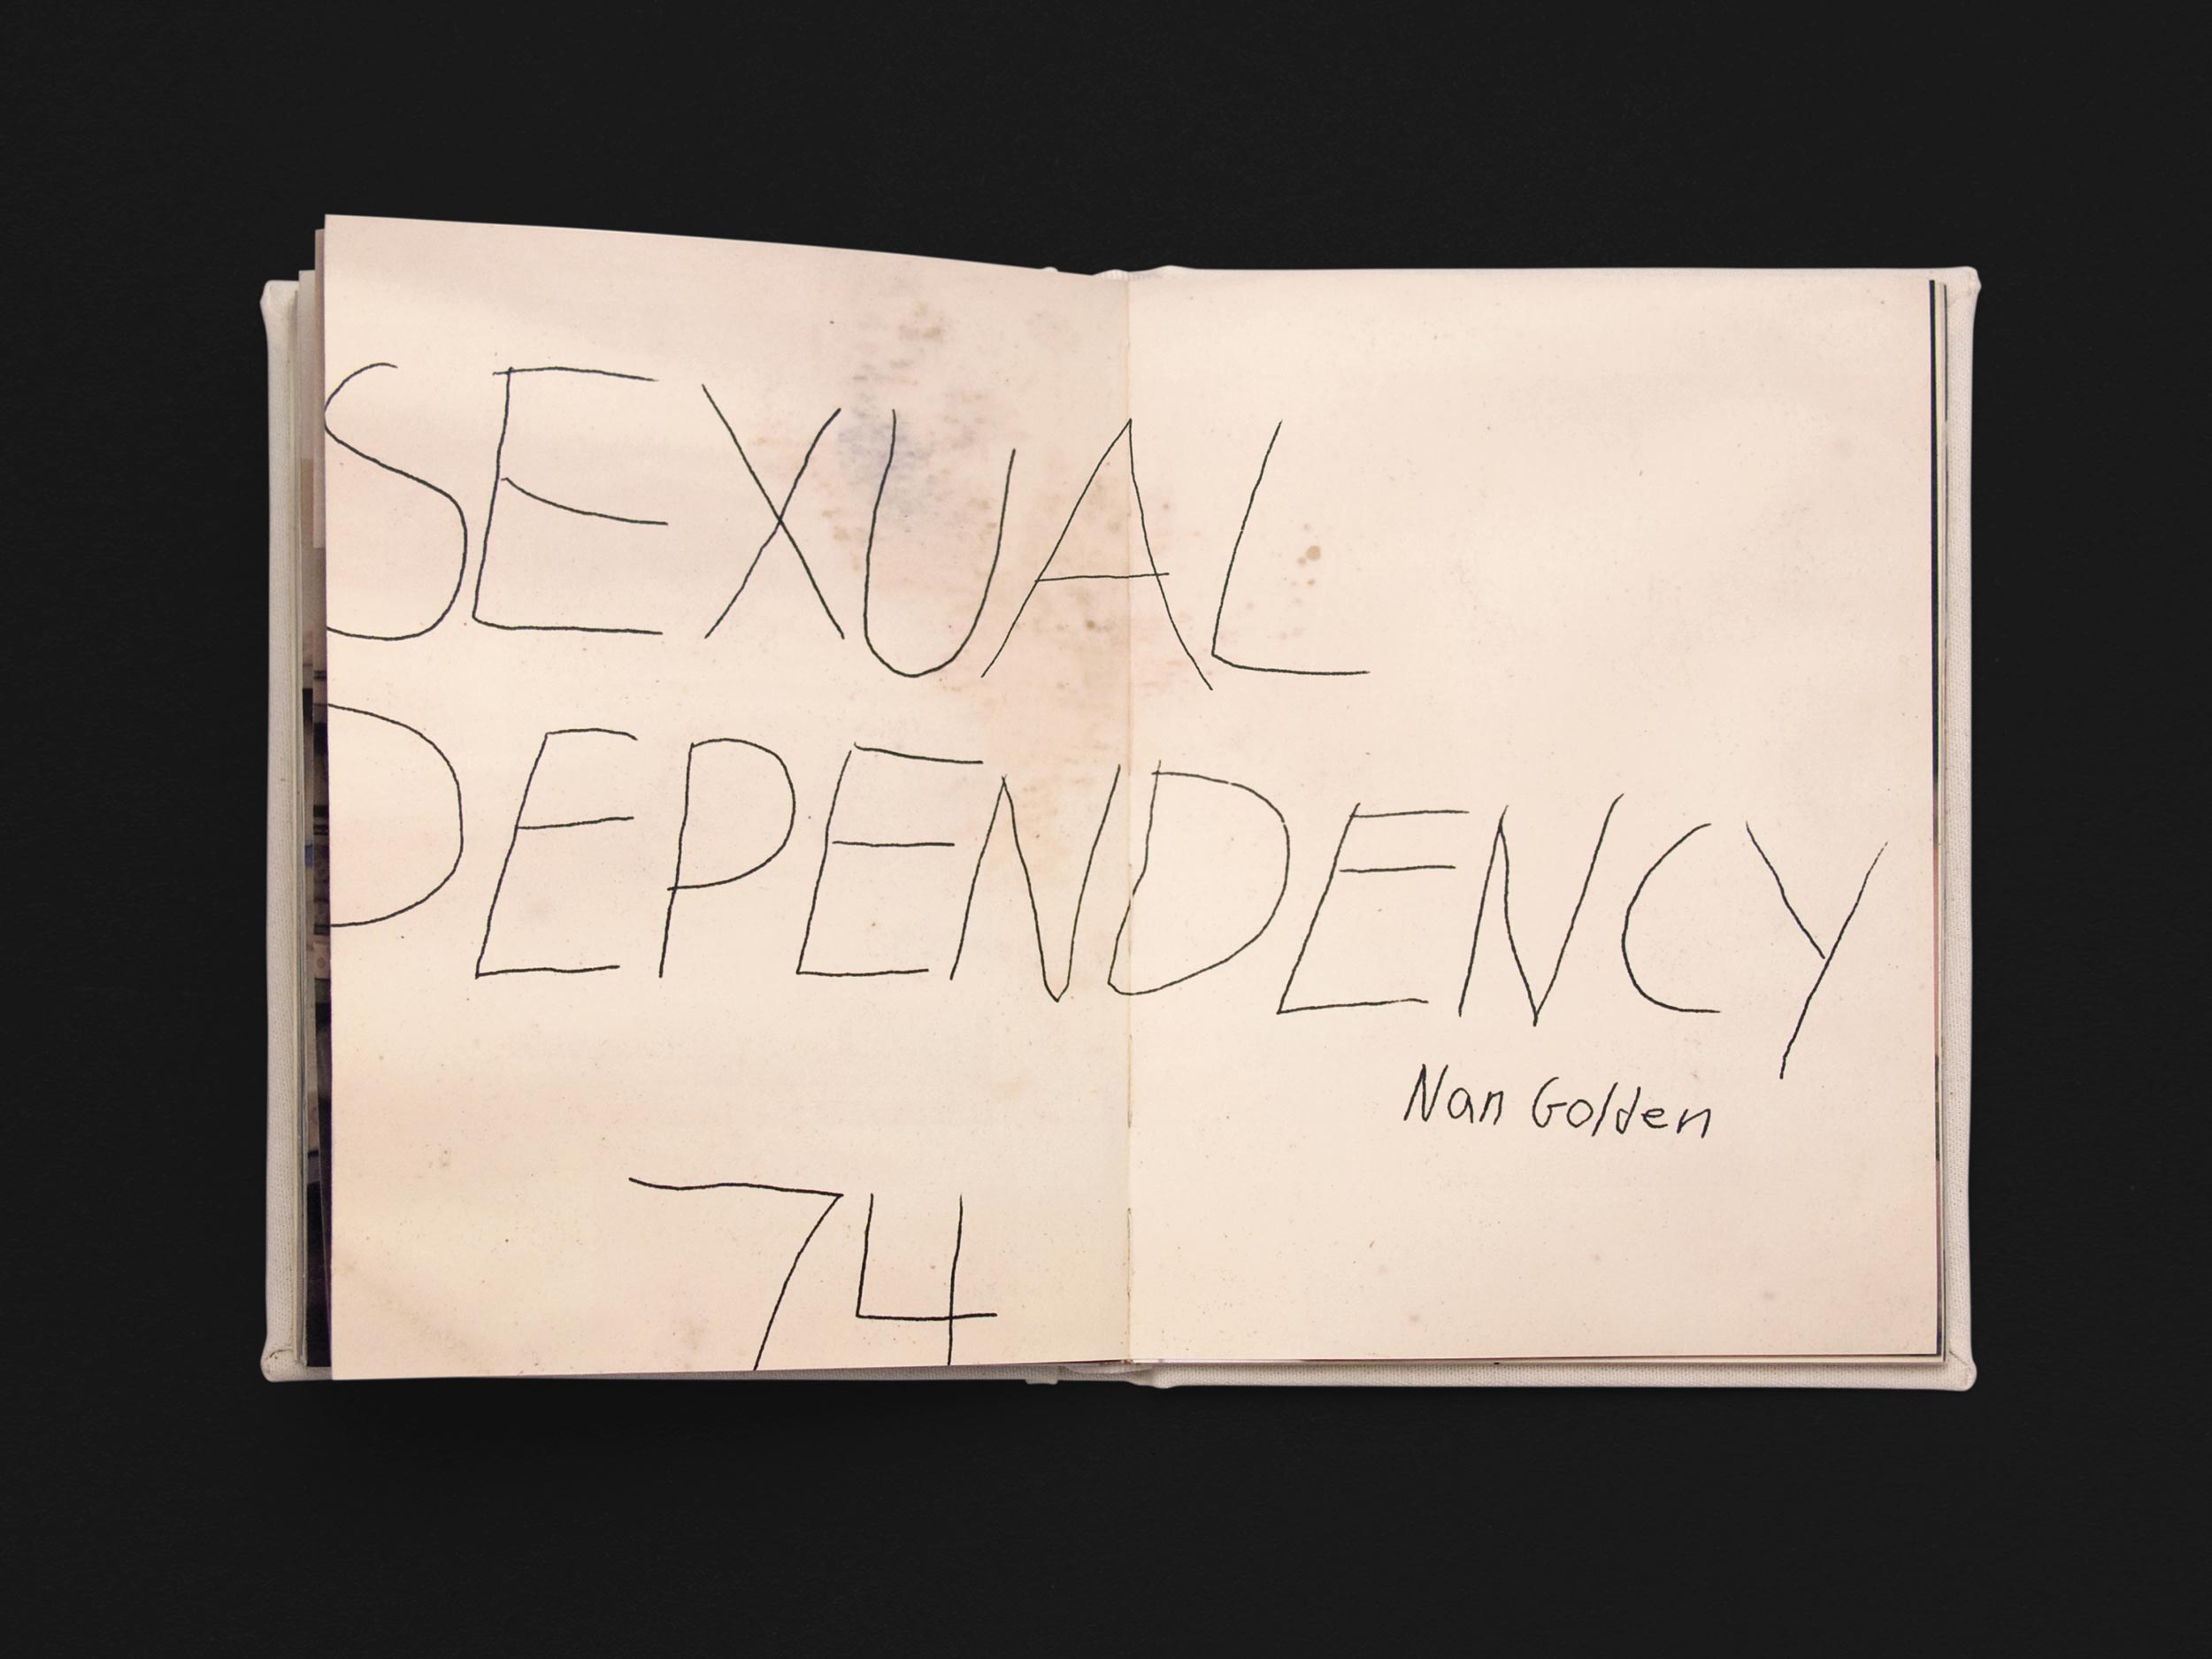 SEXUAL
DEPENDENCY
Nan Golden
74